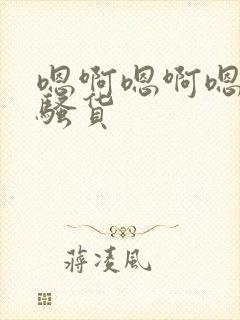 嗯啊嗯啊嗯
骚货
蒋凌风